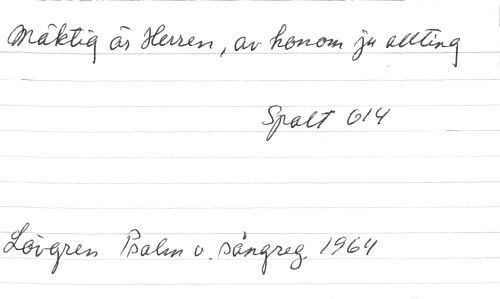 Mäktig är Herren, av honom ju allting
Spalt 614
Lövgren Psalm o. sångreg. 1964